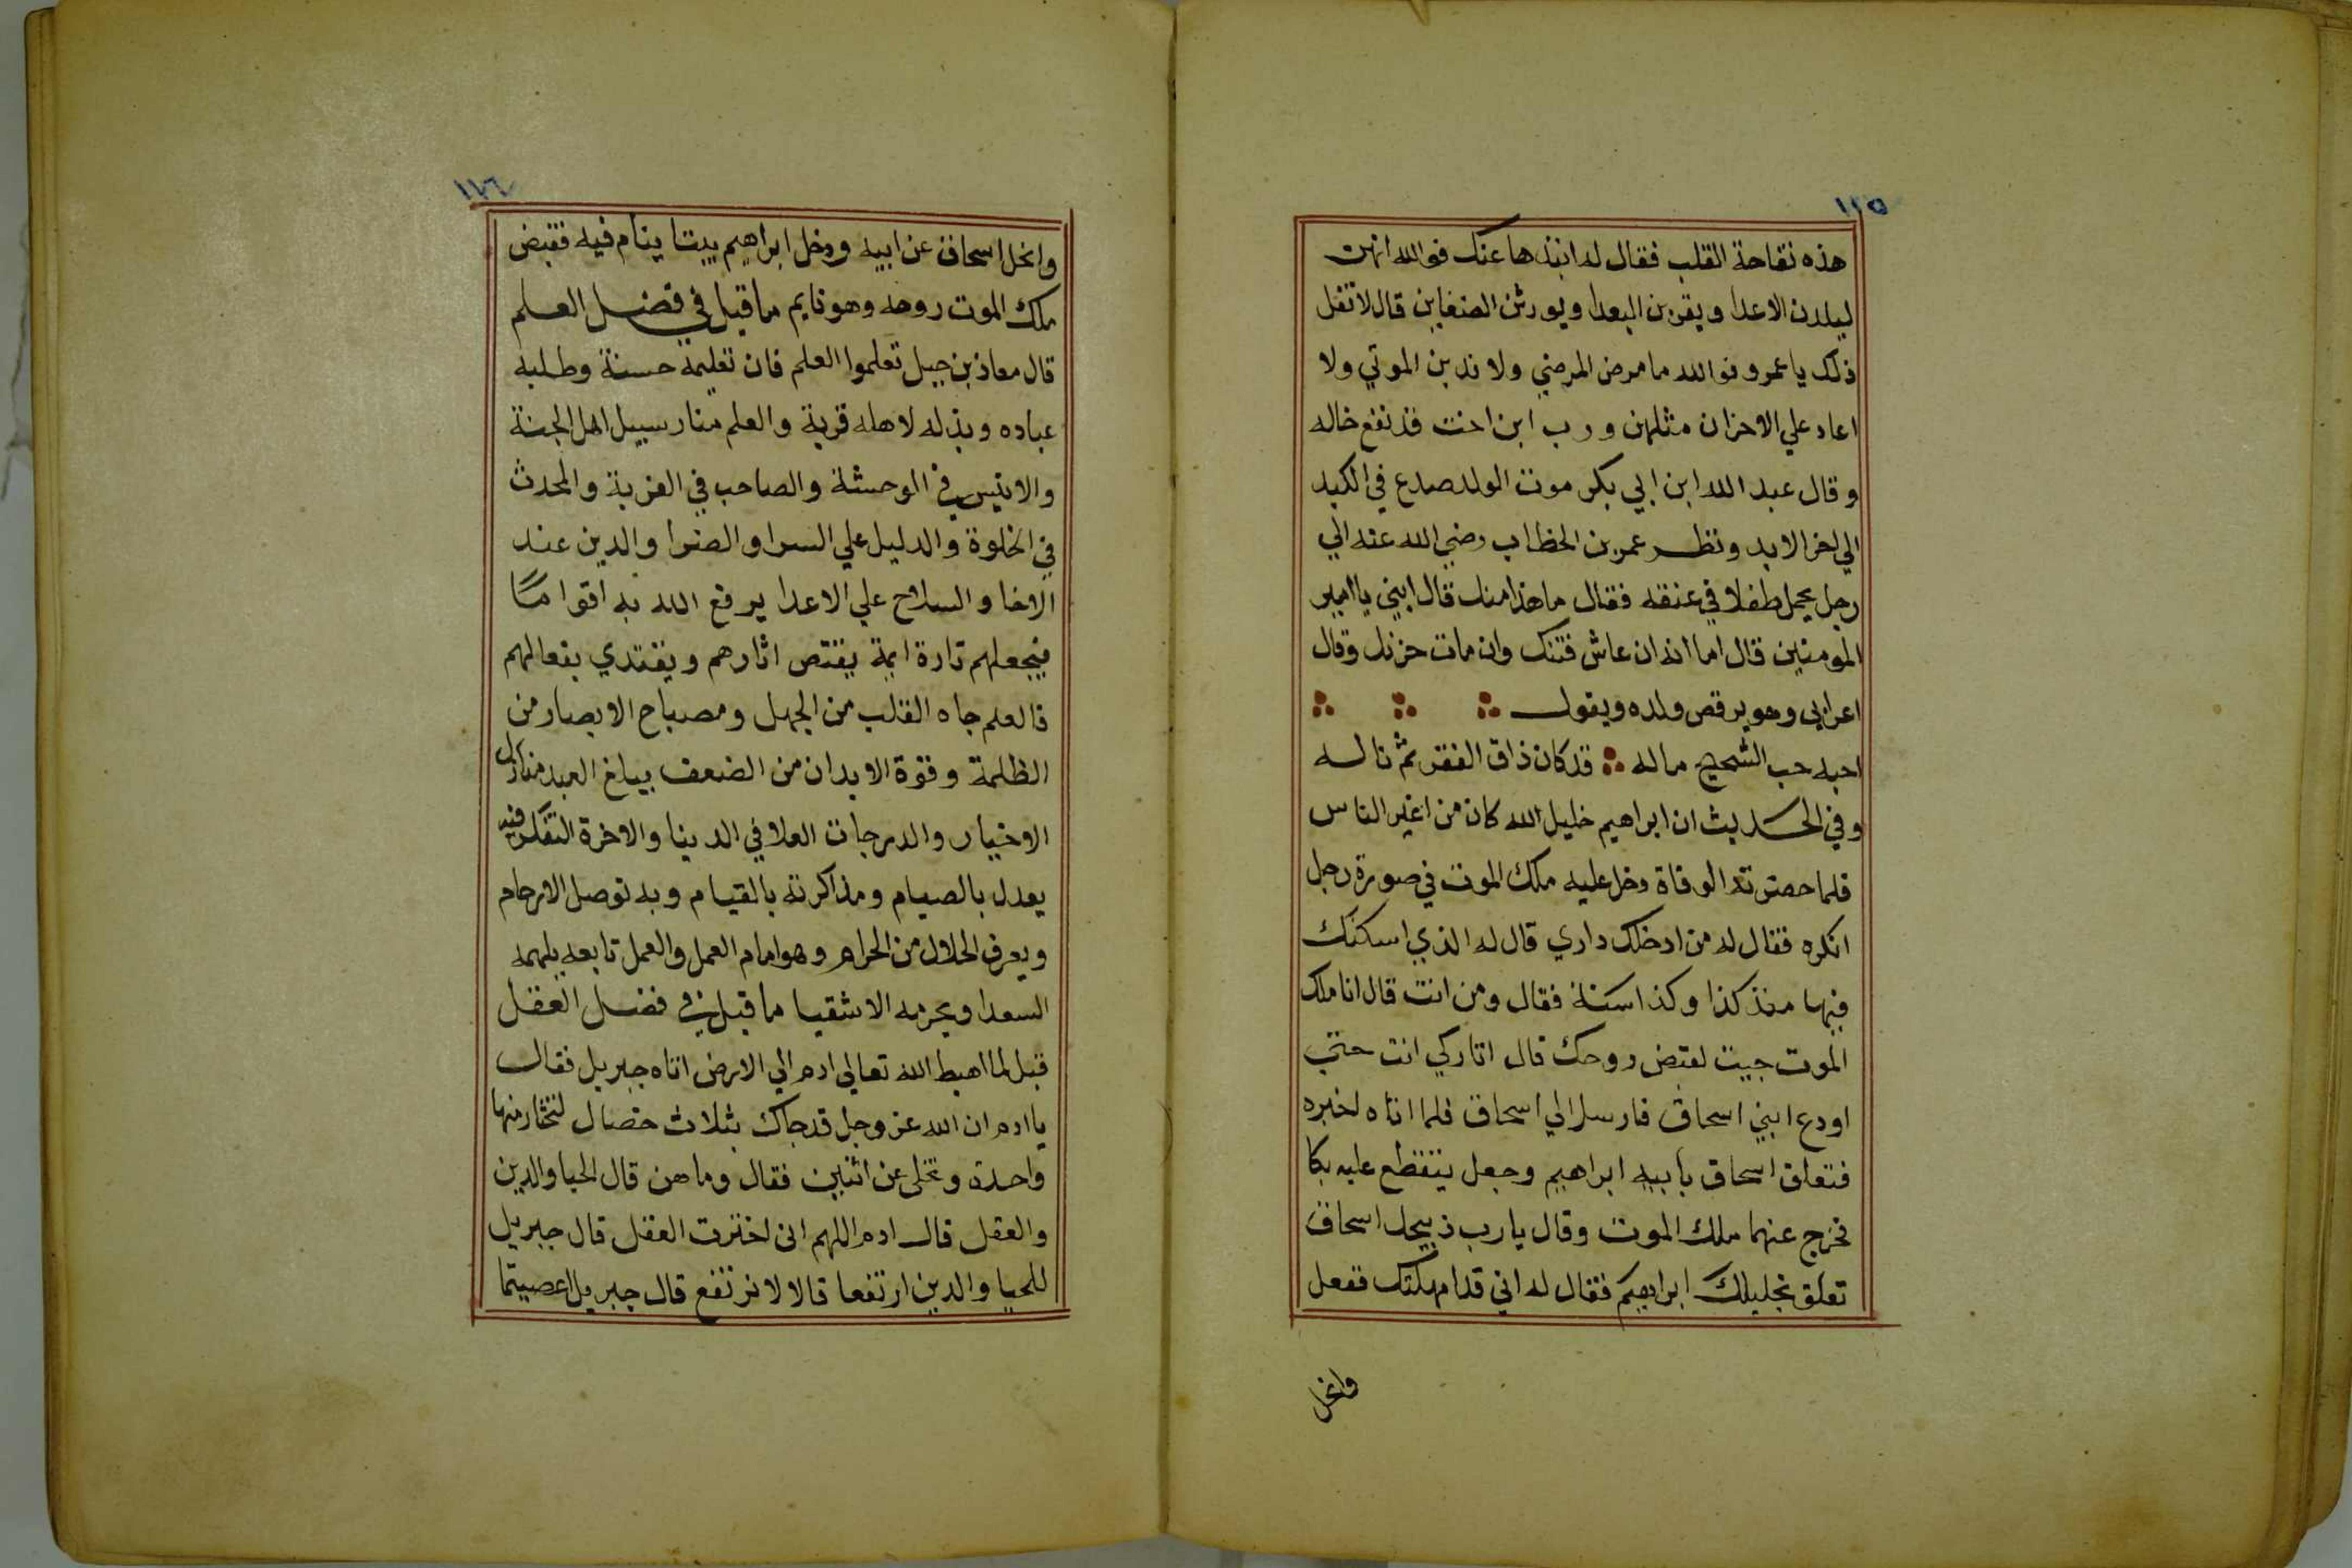 ١٢٥
هذه تفاحة القلب فقال له انبذها عنك فوالله انهن
ليلدن الاعدا ويقربن البعدا ويورثن الضغاين قال لا تقل
ذلك يا عمرو فوالله ما مرض المرضي ولا ندبن الموتي ولا
اعاد علي الاحزان مثلهن ورب ابن اخت قد نفع خاله
وقال عبد الله ابن ابي بكر موت الولد صدع في الكبد
الي اخر الابد ونظر عمر بن الخطاب رضي الله عنه الي
رجل يحمل طفلا في عنقه فقال ما هذا منك قال ابني يا امير
المومنين قال اما انه ان عاش فتنك وان مات حزنك وقال
اعرابي وهو يرقص ولده ويقول
احبه حب الشحيح ماله قد كان ذاق الفقر ثم ناله
وفي الحديث ان ابراهيم خليل الله كان من اغير الناس
فلما حضرته الوفاة دخل عليه ملك الموت في صورة رجل
انكره فقال له من ادخلك داري قال له الذي اسكنك
فيها منذ كذا وكذا سنة فقال ومن انت قال انا ملك
الموت جيت لقبض روحك قال اتاركي انت حتي
اودع ابني اسحاق فارسل الي اسحاق فلما اتاه اخبره
فتعلق اسحاق بابيه ابراهيم وجعل يتقطع عليه بكا
فخرج عنهما ملك الموت وقال يا رب ذبيحك اسحاق
تعلق بخليلك ابراهيم فقال له اني قد امهلتك ففعل
وانحل
١٢٦
وانحل اسحاق عن ابيه ودخل ابراهيم بيتا ينام فيه فقبض
ملك الموت روحه وهو نايم ما قيل في فضل العلم
قال معاذ بن جبل تعلموا العلم فان تعليمه حسنة وطلبه
عباده وبذله لاهله قربة والعلم منار سبيل اهل الجنة
والانيس في الوحشة والصاحب في الغربة والمحدث
في الخلوة والدليل علي السرا والضرا والدين عند
الاخا والسلاح علي الاعدا يرفع الله به اقواما
فيجعلهم تارة ايمة يقتص اثارهم ويقتدي بفعالهم
فالعلم جاه القلب من الجهل ومصباح الابصار من
الظلمة وقوة الابدان من الضعف يبلغ العبد منازل
الاخيار والدرجات العلا في الدنيا والاخرة التفكر فيه
يعدل بالصيام ومذاكرته بالقيام وبه توصل الارحام
ويعرف الحلال من الحرام وهو امام العمل والعمل تابعه يلهمه
السعدا ويحرمه الاشقيا ما قيل في فضل العقل
قيل لما اهبط الله تعالي ادم الي الارض اتاه جبريل فقال
يا ادم ان الله عز وجل قد جاك بثلاث خصال لتختار منها
واحدة وتخلى عن اثنين فقال وما هن قال الحيا والدين
والعقل قال ادم اللهم انى اخترت العقل قال جبريل
للحيا والدين ارتفعا قالا لا نرتفع قال جبريل اعصيتما